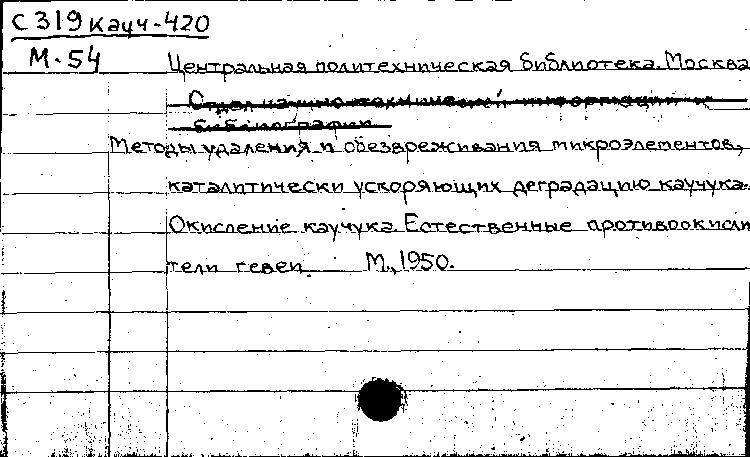 С 319 Кауч-420
М-54 Центральная политехническая библиотека. Москва
Отдел научно-технической информации и
библиографии
Методы удаления и обезвреживания микроэлементов,
каталитически ускоряющих деградацию каучука.
Окисление каучука. Естественные противоокисли
тели гевеи. М., 1950.